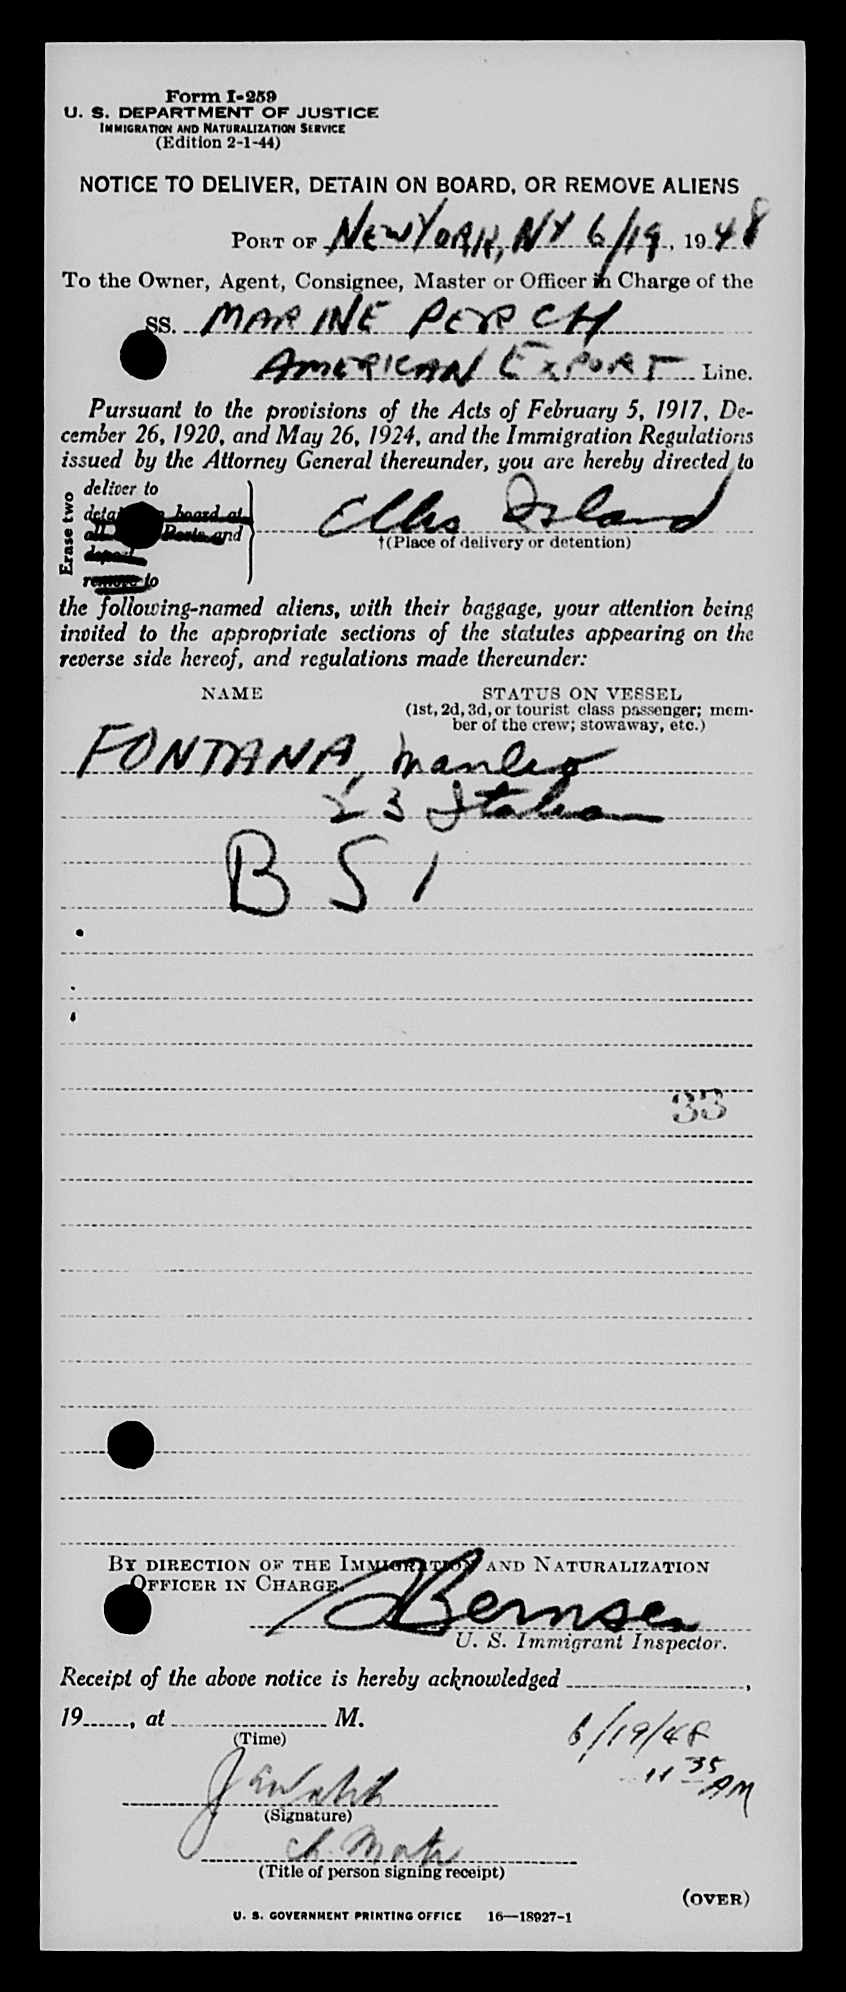 Form I-259
U. S. DEPARTMENT OF JUSTICE
IMMIGRATION AND NATURALIZATION SERVICE
(Edition 2-1-44)
NOTICE TO DELIVER, DETAIN ON BOARD, OR REMOVE ALIENS
PORT OF NEW YORK, NY 6/19, 1948
To the Owner, Agent, Consignee, Master or Officer in Charge of the
SS. MARINE PERCH
AMERICAN EXPORT Line.
Pursuant to the provisions of the Acts of February 5, 1917, De-
cember 26, 1920, and May 26, 1924, and the Immigration Regulations
issued by the Attorney General thereunder, you are hereby directed to
Erase two
deliver to
board at
and
remove to
Ellis Island
†(Place of delivery or detention)
the following-named aliens, with their baggage, your attention being
invited to the appropriate sections of the statutes appearing on the
reverse side hereof, and regulations made thereunder:
NAME STATUS ON VESSEL
(1st, 2d, 3d, or tourist class passenger; mem-
ber of the crew; stowaway, etc.)
FONTANA,
23 Italian
B S I
33
BY DIRECTION OF THE IMMIGRATION AND NATURALIZATION
OFFICER IN CHARGE.
Bernsen
U. S. Immigrant Inspector.
Receipt of the above notice is hereby acknowledged ,
19 , at M.
(Time)
6/19/48
11 35 AM
(Signature)
Ch. Mate
(Title of person signing receipt)
(OVER)
U. S. GOVERNMENT PRINTING OFFICE 16—18927-1